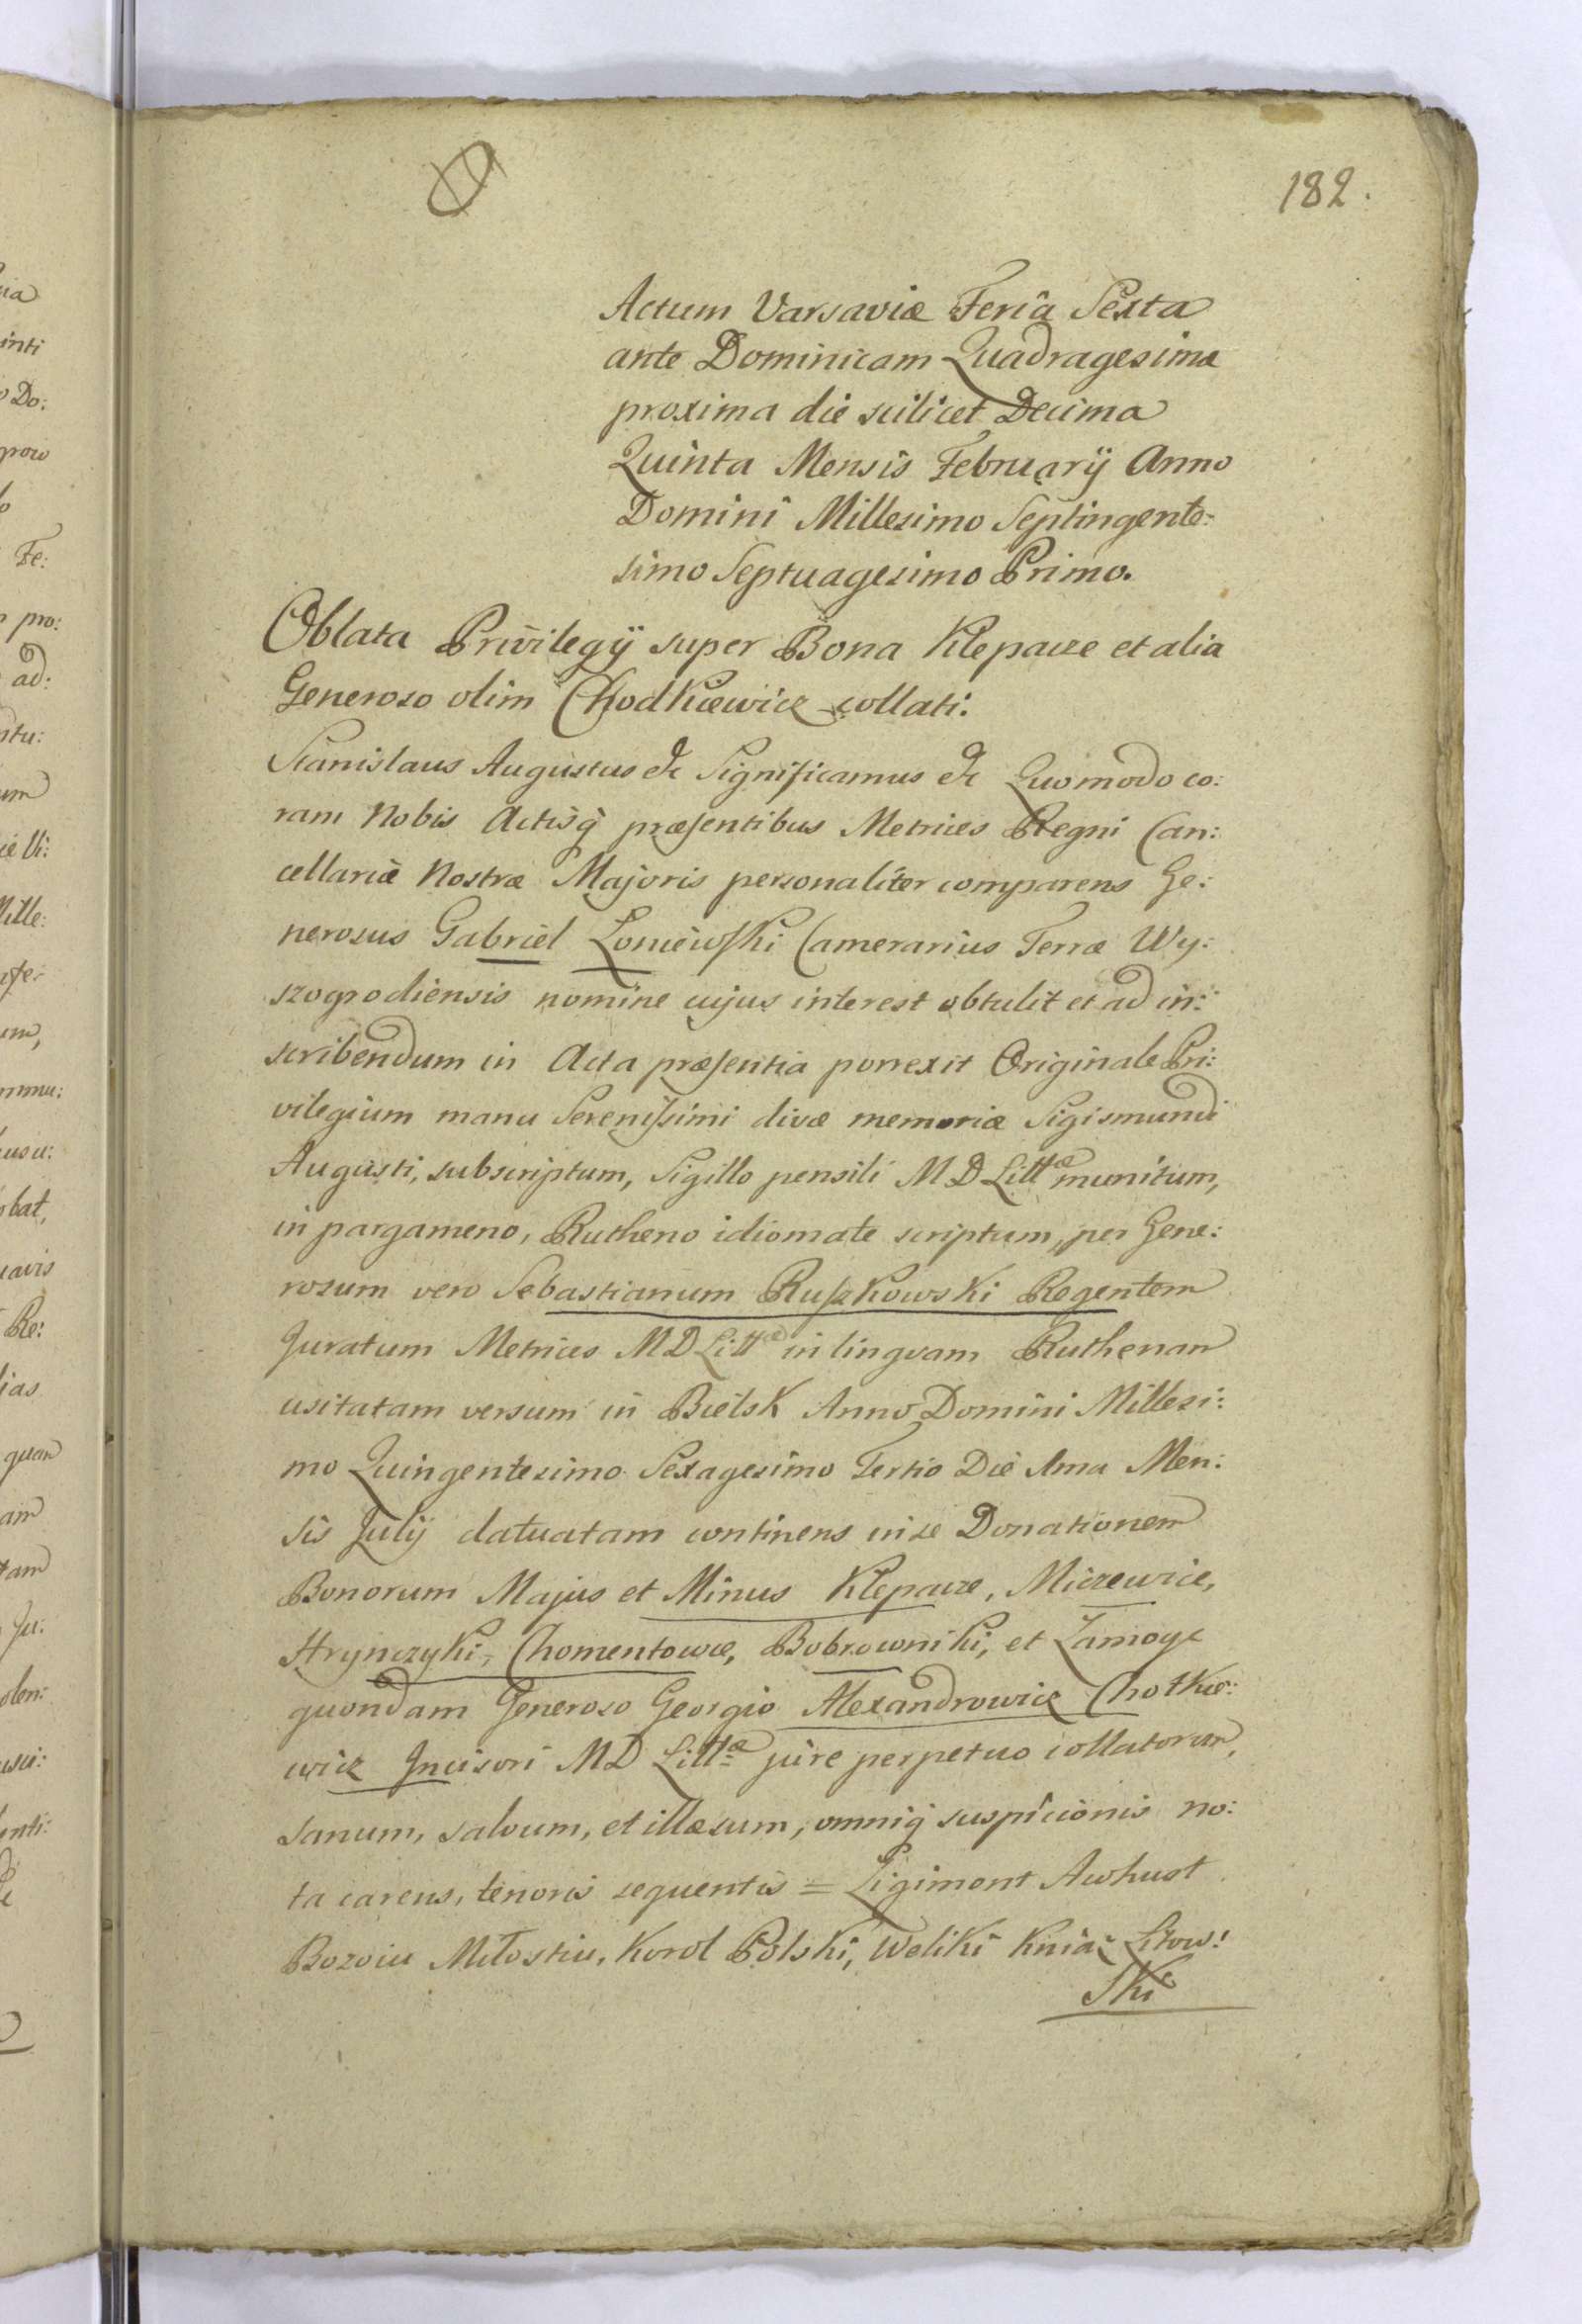 182.
Actum Varsaviæ Feriâ Sexta
ante Dominicam Quadragesimæ
proxima die scilicet Decima
Quinta Mensis Februarij Anno
Domini Millesimo Septingente-
simo Septuagesimo Primo.
Oblata Privilegij super Bona Klepacze et alia
Generoso olim Chodkiewicz collati.
Stanislaus Augustus &c Significamus &c Quomodo co:
ram Nobis Actisq̀ præsentibus Metrices Regni Can:
cellariæ Nostræ Majoris personaliter comparens Ge:
nerosus Gabriel Łoniewski Camerarius Terræ Wy:
szogrodiensis nomine cujus interest obtulit et ad in:
scribendum in Acta præsentia porrexit Originale Pri:
vilegium manu Serenissimi divæ memoriæ Sigismundi
Augusti, subscriptum, Sigillo pensili M D Littæ munitum,
in pargameno, Rutheno idiomate scriptum, per Gene:
rosum vero Sebastianum Ruszkowski Regentem
Juratum Metrices M D Littæ in lingvam Ruthenam
usitatam versum in Bielsk Anno Domini Millesi:
mo Quingentesimo Sexagesimo Tertio Die 1ma Men:
sis Julij datuatam continens in se Donationem
Bonorum Majus et Minus Klepacze, Miczewice,
Hrynczyki, Chomentowce, Bobrowniki, et Zamoyc
quondam Generoso Georgio Alexandrowicz Chotkie:
wicz Incisori M D Littæ jure perpetuo collatorum,
sanum, salvum, et illæsum, omniq̀ suspicionis no:
ta carens, tenoris sequentis = Zigimont Awhust
Bozoiu Miłostiu, Korol Polski, Weliki Kniaz Litow:
ski
ia
inti
Do:
Fe:
pro:
ad:
Mille:
bat,
Re:
ias
quam
am
tam
Ju: